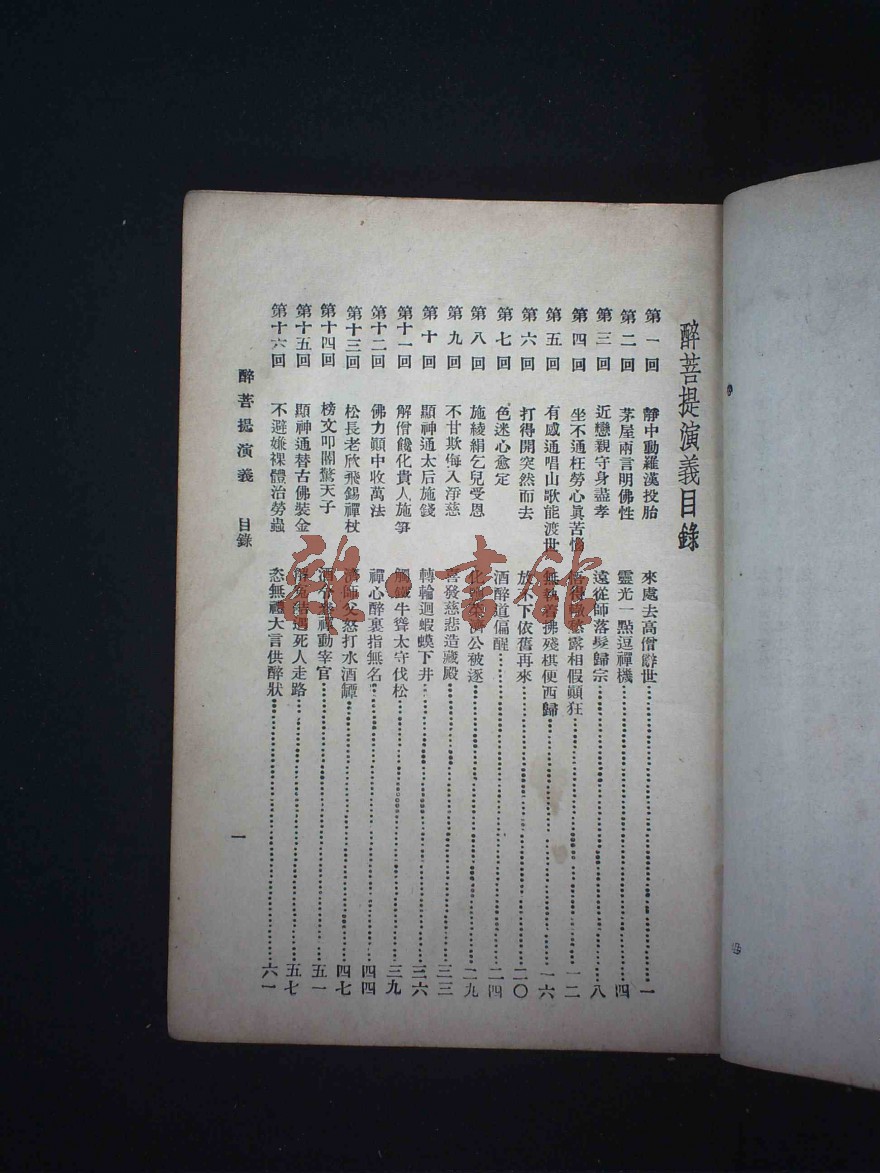 醉菩提演義目錄
第一回 靜中動羅漢投胎 來處去高僧辭世 一
第二回 茅屋兩言明佛性 靈光一點逗禪機 四
第三回 近戀親守身盡孝 遠從師落髮歸宗 八
第四回 坐不通枉勞心眞苦惱 悟得徹露相假顚狂 一二
第五回 有感通唱山歌能渡世 無執着拂殘棋便西歸 一六
第六回 打得開突然而去 放不下依舊再來 二〇
第七回 色迷心愈定 酒醉道偏醒 二四
第八回 施綾絹乞兒受恩 化濟公被逐 二九
第九回 不甘欺侮入淨慈 喜發慈悲造藏殿 三三
第十回 顯神通太后施錢 轉輪迴蝦蟆下井 三六
第十一回 解僧饞化貴人施筍 觸鐵牛聳太守伐松 三九
第十二回 佛力顚中收萬法 禪心醉裏指無名 四四
第十三回 松長老欣飛錫禪杖 濟師父怒打水酒罈 四七
第十四回 榜文叩閽驚天子 酒禪動宰官 五一
第十五回 顯神通替古佛裝金 解冤結遇死人走路 五七
第十六回 不避嫌裸體治勞蟲 恣無禮大言供醉狀 六一
醉菩提演義 目錄
一
雜·書館